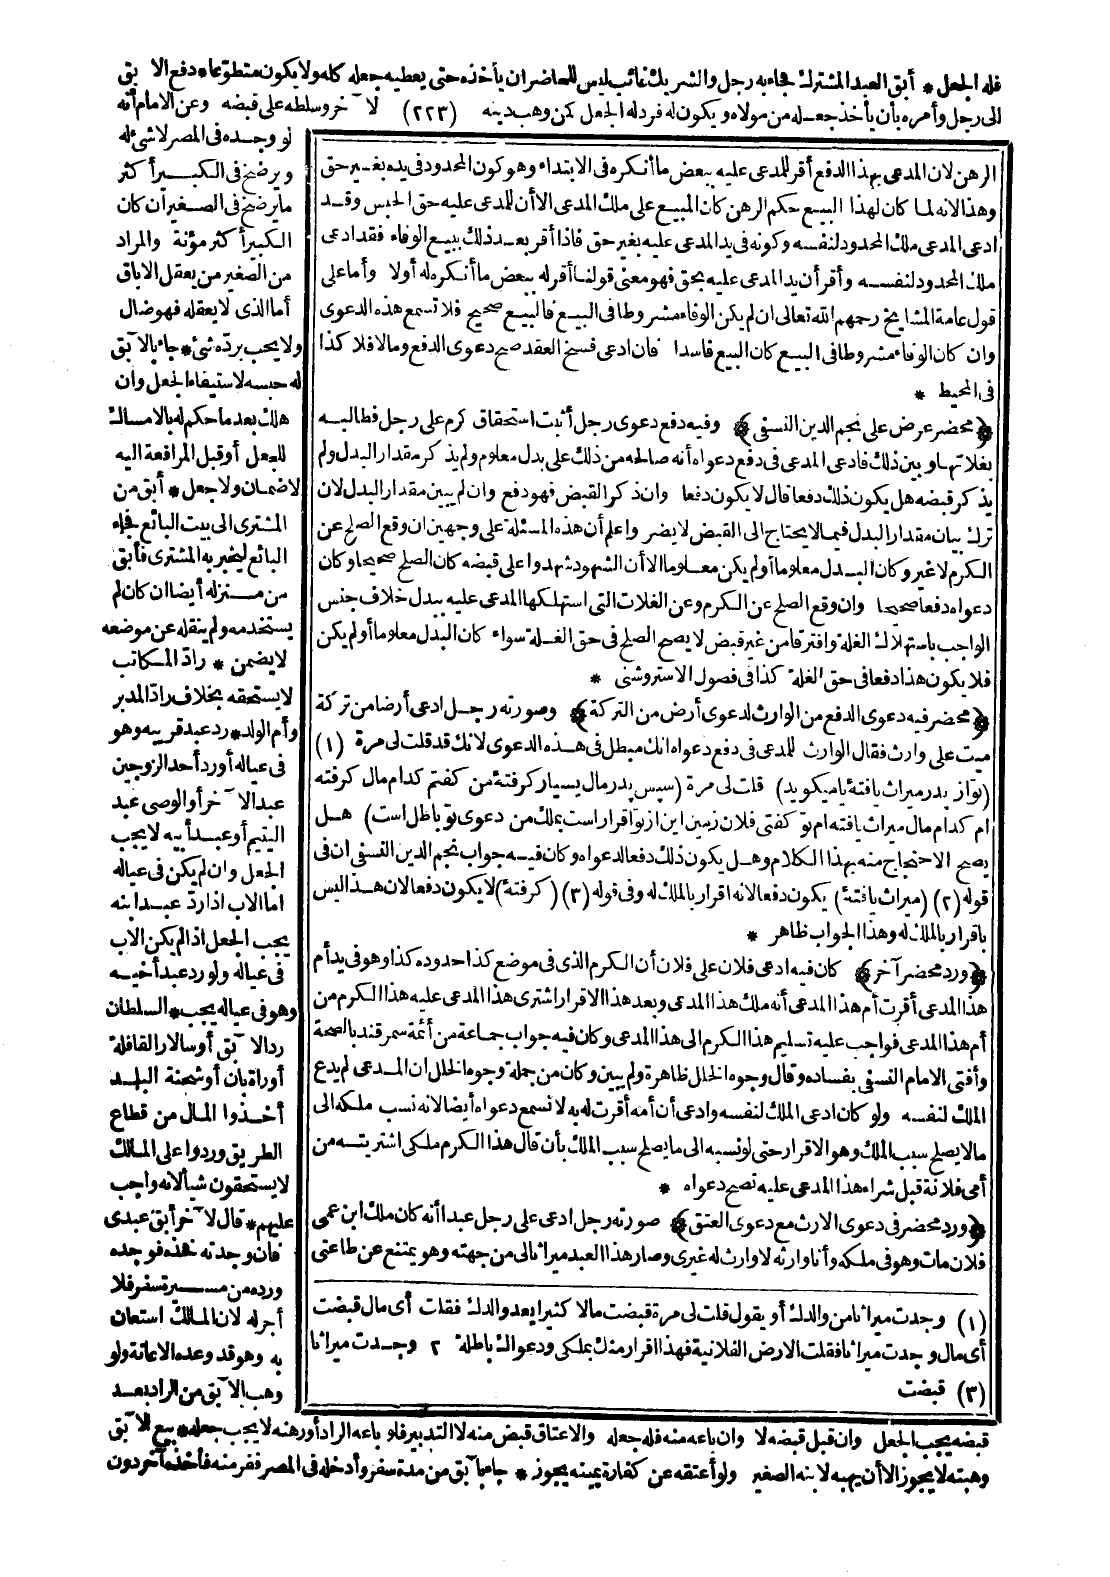 فله الجعل * أبق العبد المشترك فجاء به رجل والشريك غائب ليس للحاضر ان يأخذه حتى يعطيه جعله كله ولا يكون متطوعا * دفع الآبق
الى رجل وأمره بأن يأخذ جعله من مولاه ويكون له فرد له الجعل كمن وهب دينه (٢٢٣) لآخر وسلطه على قبضه وعن الامام أنه
لو وجده فى المصر لا شئ له
ويرضخ فى الكبير أكثر
ما يرضخ فى الصغير ان كان
الكبير أكثر مؤنة والمراد
من الصغير من يعقل الاباق
أما الذى لا يعقله فهو ضال
ولا يجب برده شئ * جاء بالآبق
له حبسه لاستيفاء الجعل وان
هلك بعد ما حكم له بالامساك
للجعل أو قبل المرافعة اليه
لا ضمان ولا جعل * أبق من
المشترى الى بيت البائع فجاء
البائع ليخبر به المشترى فأبق
من منزله أيضا ان كان لم
يستخدمه ولم ينقله عن موضعه
لا يضمن * راد المكاتب
لا يستحقه بخلاف راد المدبر
وأم الولد * رد عبد قريبه وهو
فى عياله أو رد أحد الزوجين
عبد الآخر أو الوصى عبد
اليتيم أو عبد أبيه لا يجب
الجعل وان لم يكن فى عياله
اما الاب اذا رد عبد ابنه
يجب الجعل اذا لم يكن الاب
فى عياله ولو رد عبد أخيه
وهو فى عياله يجب * السلطان
رد الآبق أو سالار القافلة
أو راه بان أو شحنة البلد
أخذوا المال من قطاع
الطريق وردوا على المالك
لا يستحقون شيأ لانه واجب
عليهم * قال لآخر أبق عبدى
فان وجدته فخذه فوجده
ورده من مسيرة سفر فلا
أجر له لان المالك استعان
به وهو قد وعده الاعانة ولو
وهب الآبق من الراد بعد
الرهن لان المدعى بهذا الدفع أقر للمدعى عليه ببعض ما أنكره فى الابتداء وهو كون المحدود فى يده بغير حق
وهذا لانه لما كان لهذا البيع حكم الرهن كان المبيع على ملك المدعى الا أن للمدعى عليه حق الحبس وقد
ادعى المدعى ملك المحدود لنفسه وكونه فى يد المدعى عليه بغير حق فاذا أقر بعد ذلك ببيع الوفاء فقد ادعى
ملك المحدود لنفسه وأقر أن يد المدعى عليه بحق فهو معنى قولنا أقر له ببعض ما أنكره له أولا وأما على
قول عامة المشايخ رحمهم الله تعالى ان لم يكن الوفاء مشروطا فى البيع فالبيع صحيح فلا تسمع هذه الدعوى
وان كان الوفاء مشروطا فى البيع كان البيع فاسدا فان ادعى فسخ العقد صح دعوى الدفع وما لا فلا كذا
فى المحيط *
﴿محضر عرض على نجم الدين النسفى﴾ وفيه دفع دعوى رجل أثبت استحقاق كرم على رجل فطالبه
بغلاتها وبين ذلك فادعى المدعى فى دفع دعواه أنه صالحه من ذلك على بدل معلوم ولم يذكر مقدار البدل ولم
يذكر قبضه هل يكون ذلك دفعا قال لا يكون دفعا وان ذكر القبض فهو دفع وان لم يبين مقدار البدل لان
ترك بيان مقدار البدل فيما لا يحتاج الى القبض لا يضر واعلم أن هذه المسئلة على وجهين ان وقع الصلح عن
الكرم لا غير وكان البدل معلوما أو لم يكن معلوما الا أن الشهود شهدوا على قبضه كان الصلح صحيحا وكان
دعواه دفعا صحيحا وان وقع الصلح عن الكرم وعن الغلات التى استهلكها المدعى عليه ببدل خلاف جنس
الواجب باستهلاك الغلة وافترقا من غير قبض لا يصح الصلح فى حق الغلة سواء كان البدل معلوما أو لم يكن
فلا يكون هذا دفعا فى حق الغلة كذا فى فصول الاستروشنى *
﴿محضر فيه دعوى الدفع من الوارث لدعوى أرض من التركة﴾ وصورته رجل ادعى أرضا من تركة
ميت على وارث فقال الوارث للمدعى فى دفع دعواه انك مبطل فى هذه الدعوى لانك قد قلت لى مرة (١)
(تواز پدر ميراث يافتهٔ يا ميكويد) قلت لى مرة (سپس پدر مال بسيار كرفتهٔ من كفتم كدام مال كرفته
ام كدام مال ميراث يافته ام تو كفتى فلان زمين اين از تو اقرار است بملك من دعوى تو باطل است) هل
يصح الاحتجاج منه بهذا الكلام وهل يكون ذلك دفعا لدعواه وكان فيه جواب نجم الدين النسفى ان فى
قوله (٢) (ميراث يافتهٔ) يكون دفعا لانه اقرار بالملك له وفى قوله (٣) (كرفتهٔ) لا يكون دفعا لان هذا ليس
باقرار بالملك له وهذا الجواب ظاهر *
﴿ورد محضر آخر﴾ كان فيه ادعى فلان على فلان أن الكرم الذى فى موضع كذا حدوده كذا وهو فى يد أم
هذا المدعى أقرت أم هذا المدعى أنه ملك هذا المدعى وبعد هذا الاقرار اشترى هذا المدعى عليه هذا الكرم من
أم هذا المدعى فواجب عليه تسليم هذا الكرم الى هذا المدعى وكان فيه جواب جماعة من أئمة سمرقند بالصحة
وأفتى الامام النسفى بفساده وقال وجوه الخلل ظاهرة ولم يبين وكان من جملة وجوه الخلل ان المدعى لم يدع
الملك لنفسه ولو كان ادعى الملك لنفسه وادعى أن أمه أقرت له به لا تسمع دعواه أيضا لانه نسب ملكه الى
ما لا يصلح سبب الملك وهو الاقرار حتى لو نسبه الى ما يصلح سبب الملك بأن قال هذا الكرم ملكى اشتريته من
أمى فلانة قبل شراء هذا المدعى عليه تصح دعواه *
﴿ورد محضر فى دعوى الارث مع دعوى العتق﴾ صورته رجل ادعى على رجل عبدا أنه كان ملك ابن عمى
فلان مات وهو فى ملكه وأنا وارثه لا وارث له غيرى وصار هذا العبد ميراثا لى من جهته وهو يمتنع عن طاعتى
(١) وجدت ميراثا من والدك أو يقول قلت لى مرة قبضت مالا كثيرا بعد والدك فقلت أى مال قبضت
أى مال وجدت ميراثا فقلت الارض الفلانية فهذا اقرار منك بملكى ودعواك باطلة ٢ وجدت ميراثا
(٣) قبضت
قبضه يجب الجعل وان قبل قبضه لا وان باعه منه فله جعله والاعتاق قبض منه لا التدبير فلو باعه الراد أو رهنه لا يجب جعله * بيع الآبق
وهبته لا يجوز الا أن يهبه لابنه الصغير ولو أعتقه عن كفارة يمينه يجوز * جاء بآبق من مدة سفر وأدخله فى المصر ففر منه فأخذه آخر دون